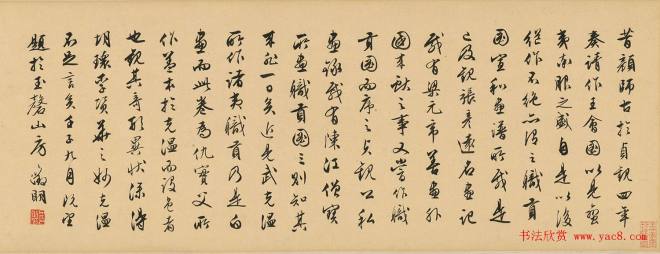 昔顏師古於貞觀四年
奏請作王會圖以見蠻
夷率服之盛自是以後
繼作不絕亦謂之職貢
圖宣和畫譜所載是
已及觀張彥遠名畫記
載有梁元帝善畫外
國來獻之事又嘗作職
貢圖而序之貞觀公私
畫錄載有陳江僧寶
所畫職貢圖三則知其
來非一日矣近見武克溫
所作諸夷職貢乃是白
畫而此卷為仇實父所
作蓋本於克溫而設色者
也觀其奇形異狀深得
胡瓌李贊華之妙克溫
不足言矣壬子九月既望
題於玉磬山房徵明
书法欣赏 www.yac8.com